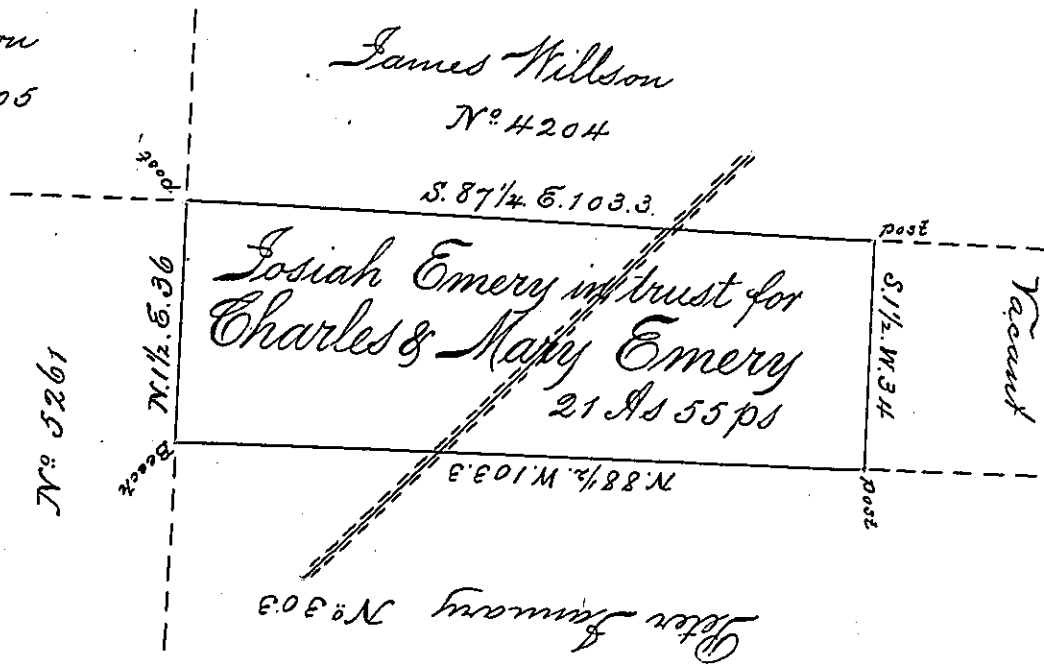 05
James Willson
Nº 4204
post
S. 87 1/4. E. 103.3.
post
Josiah Emery in trust for
Charles & Mary Emery
21 As 55 ps
N. 1 1/2. E. 36
S 1 1/2. W. 34
Vacant
Nº 5261
Beech
N. 88 1/2. W. 103.3
post
Peter January Nº 303